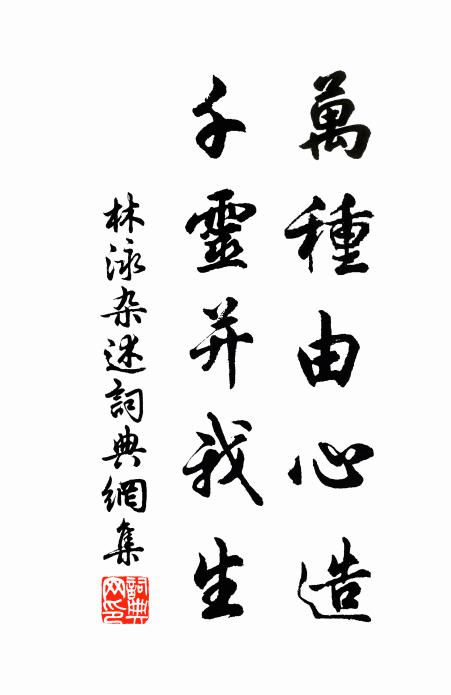 萬種由心造
千靈并我生
林泳杂述詞典網集
詞典网印